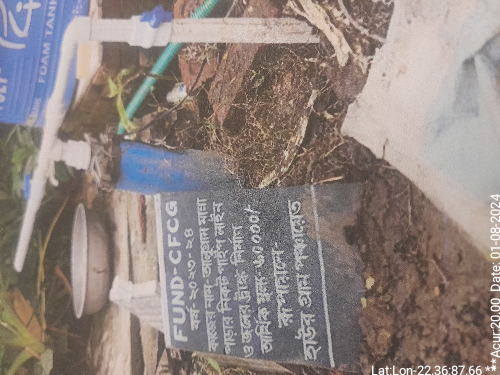 FUND-CFCG
বর্ষ-২০২৩-২৪
কাজের নাম-আনুয়াল মান্না
পাড়ার নিকট পাইপ লাইন
ও জলের ট্যাঙ্ক নির্মাণ
আর্থিক মূল্য-৬০০০০/-
রূপায়নে-
হাউর গ্রাম পঞ্চায়েত
FOAM TANK
Lat:Lon-22.36:87.66
**Acur:20.00 Date: 01-08-2024